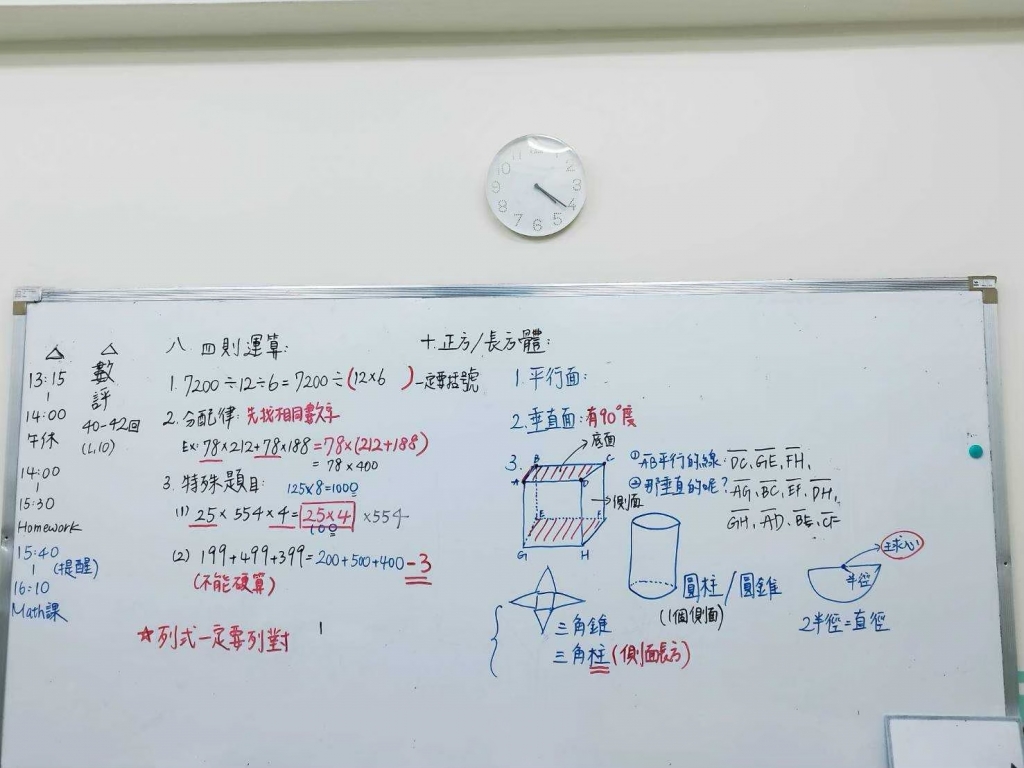 11 12 1 2 3 4 5 6 7 8 9 10
13:15
|
14:00
午休
14:00
|
15:30
Homework
15:40
| (提醒)
16:10
Math課
數
評
40-42回
(L10)
八.四則運算:
1. 7200÷12÷6=7200÷(12×6 )一定要括號
2. 分配律:先找相同數字
Ex: 78×212+78×188=78×(212+188)
=78×400
3. 特殊題目: 125×8=1000
(1) 25×554×4=25×4×554
100
(2) 199+499+399=200+500+400-3
(不能硬算)
☆列式一定要列對
十.正方/長方體:
1.平行面:
2.垂直面:有90°度
底面
3.
A B C D E F G H
側面
①AB平行的線:DC、GE、FH,
②那垂直的呢?AG、BC、EF、DH,
GH、AD、BE、CF
三角錐
三角柱(側面長方)
圓柱/圓錐
(1個側面)
球心
半徑
2半徑=直徑